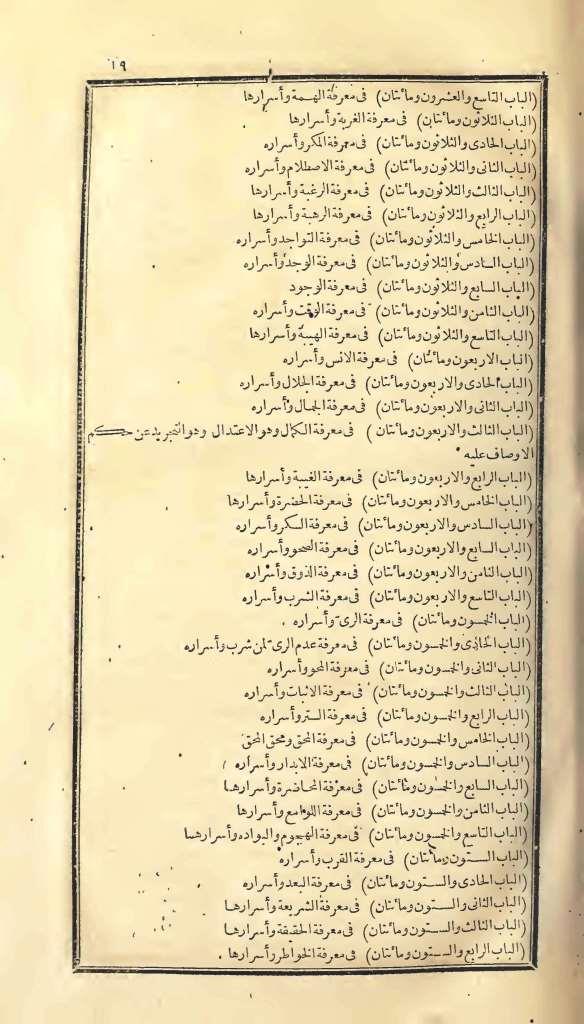 ١٩
(الباب التاسع والعشرون ومائتان) فى معرفة الهمة وأسرارها
(الباب الثلاثون ومائتان) فى معرفة الغربة وأسرارها
(الباب الحادى والثلاثون ومائتان) فى معرفة المكر وأسراره
(الباب الثانى والثلاثون ومائتان) فى معرفة الاصطلام وأسراره
(الباب الثالث والثلاثون ومائتان) فى معرفة الرغبة وأسرارها
(الباب الرابع والثلاثون ومائتان) فى معرفة الرهبة وأسرارها
(الباب الخامس والثلاثون ومائتان) فى معرفة التواجد وأسراره
(الباب السادس والثلاثون ومائتان) فى معرفة الوجد وأسراره
(الباب السابع والثلاثون ومائتان) فى معرفة الوجود
(الباب الثامن والثلاثون ومائتان) فى معرفة الوقت وأسراره
(الباب التاسع والثلاثون ومائتان) فى معرفة الهيبة وأسرارها
(الباب الاربعون ومائتان) فى معرفة الانس وأسراره
(الباب الحادى والاربعون ومائتان) فى معرفة الجلال وأسراره
(الباب الثانى والاربعون ومائتان) فى معرفة الجمال وأسراره
(الباب الثالث والاربعون ومائتان) فى معرفة الكمال وهو الاعتدال وهو التجريد عن حكم
الاوصاف عليه
(الباب الرابع والاربعون ومائتان) فى معرفة الغيبة وأسرارها
(الباب الخامس والاربعون ومائتان) فى معرفة الحضرة وأسرارها
(الباب السادس والاربعون ومائتان) فى معرفة السكر وأسراره
(الباب السابع والاربعون ومائتان) فى معرفة الصحو وأسراره
(الباب الثامن والاربعون ومائتان) فى معرفة الذوق وأسراره
(الباب التاسع والاربعون ومائتان) فى معرفة الشرب وأسراره
(الباب الخمسون ومائتان) فى معرفة الرىّ وأسراره
(الباب الحادى والخمسون ومائتان) فى معرفة عدم الرىّ لمن شرب وأسراره
(الباب الثانى والخمسون ومائتان) فى معرفة المحو وأسراره
(الباب الثالث والخمسون ومائتان) فى معرفة الاثبات وأسراره
(الباب الرابع والخمسون ومائتان) فى معرفة الستر وأسراره
(الباب الخامس والخمسون ومائتان) فى معرفة المحق ومحق المحق
(الباب السادس والخمسون ومائتان) فى معرفة الابدار وأسراره
(الباب السابع والخمسون ومائتان) فى معرفة المحاضرة وأسرارها
(الباب الثامن والخمسون ومائتان) فى معرفة اللوامع وأسرارها
(الباب التاسع والخمسون ومائتان) فى معرفة الهجوم والبواده وأسرارهما
(الباب الستون ومائتان) فى معرفة القرب وأسراره
(الباب الحادى والستون ومائتان) فى معرفة البعد وأسراره
(الباب الثانى والستون ومائتان) فى معرفة الشريعة وأسرارها
(الباب الثالث والستون ومائتان) فى معرفة الحقيقة وأسرارها
(الباب الرابع والستون ومائتان) فى معرفة الخواطر وأسرارها